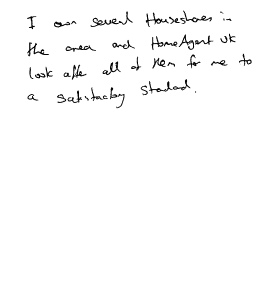 I own several Houseshares in
the area and HomeAgent UK
look after all of them for me to
a satisfactory standard.